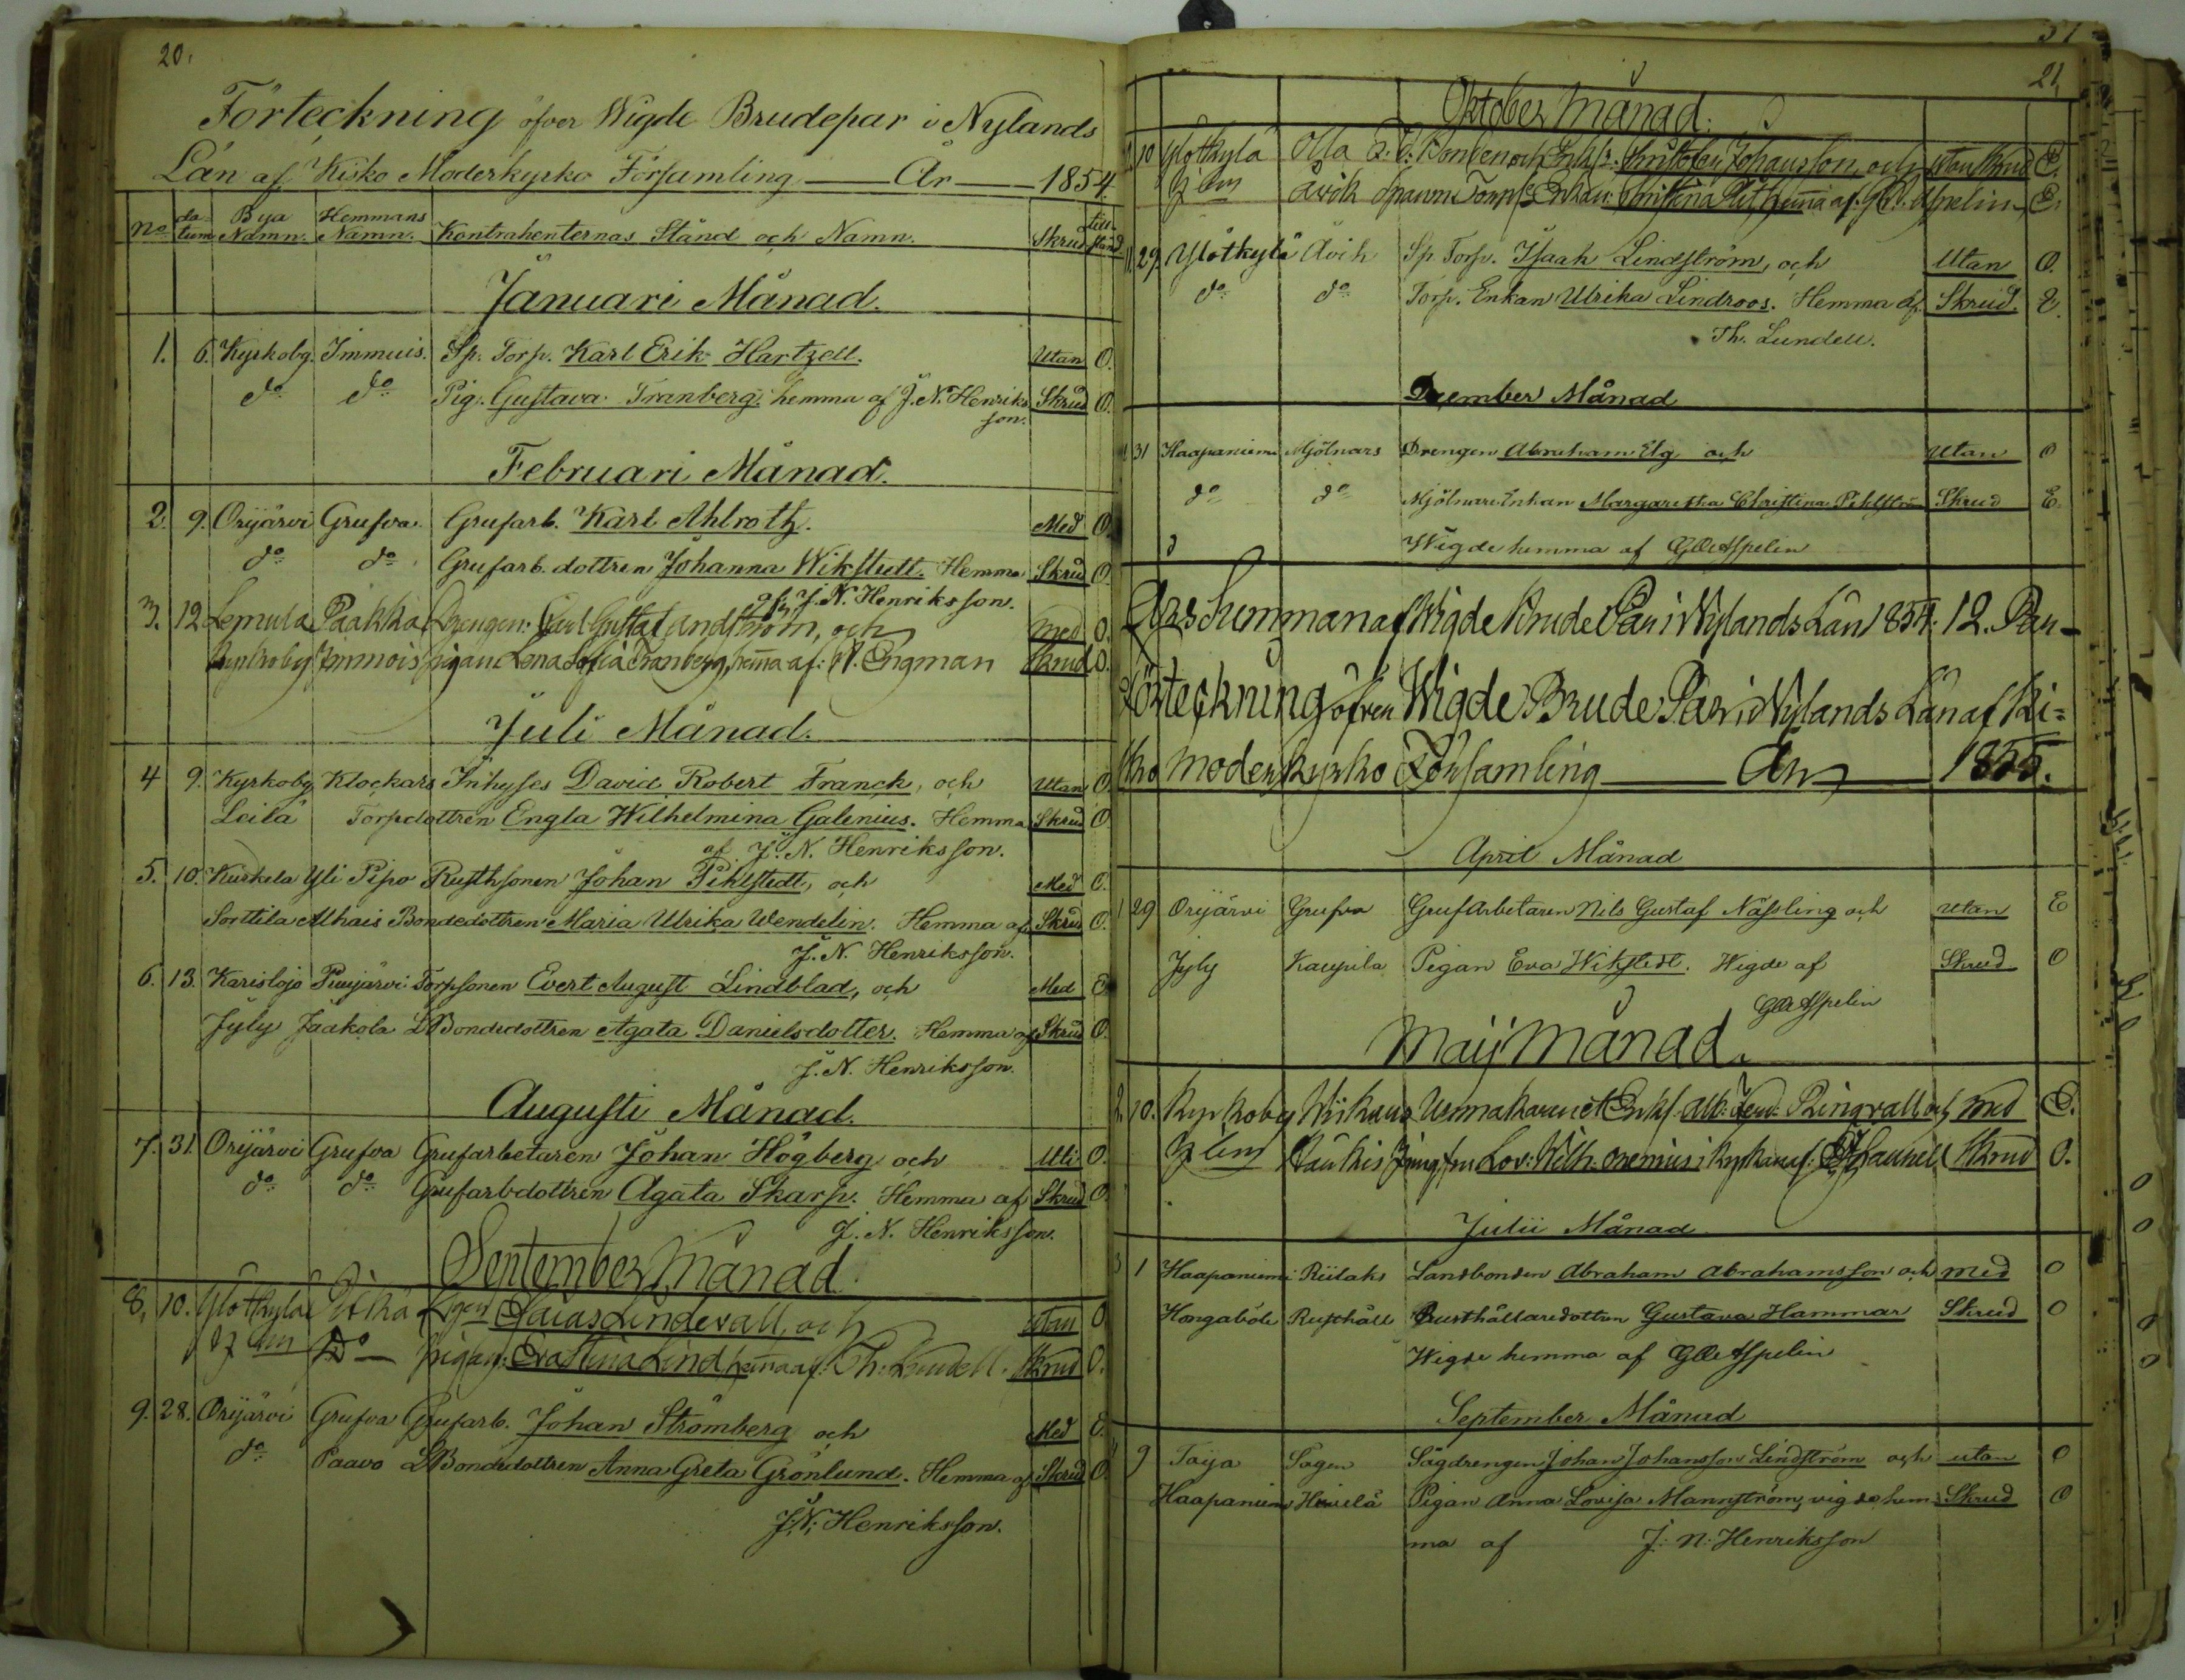 20.
Förteckning öfver Wigde Brudepar i Nylands
Län af Kisko Moderkyrko Församling — År — 1854.
No datum Bya Namn. Hemmans Namn. Kontrahenternas Stånd och Namn. Skrud tillstånd
Januari Månad.
1. 6. Kyrkobg. Immuis. Sp. Torp. Karl Erik Hartzell. Utan O.
do do Pig. Gustava Tranberg. hemma af J. N. Henriks Skrud O.
son.
Februari Månad.
2. 9. Orijärvi Grufva. Grufarb. Karl Ahlroth. Med O.
do do Grufarb. dottren Johanna Wikstedt. Hemma Skrud O.
af J. N. Henriksson.
3. 12 Lemula Paakka Drengen: Carl Gustaf Andström, och med O.
Kyrkoby Immois pigan Lena Sofia Tranberg, hema af: N. Engman Skrud O.
Juli Månad.
4 9. Kyrkobg Klockars Inhyses David Robert Franck, och Utan O.
Leilä Torpdottren Engla Wilhelmina Galenius. Hemma Skrud O.
af J. N. Henriksson.
5. 10. Kurkela Yli Pipo Rusthsonen Johan Pihlstedt, och Med O.
Sorttila Alhais Bondedottren Maria Ulrika Wendelin. Hemma af Skrud O.
J. N. Henriksson.
6. 13. Karislojo Puujärvi Torpsonen Evert August Lindblad, och Med E
Jyly Jaakola LBondedottren Agata Danielsdotter. Hemma af Skrud O.
J. N. Henriksson.
Augusti Månad.
7. 31. Orijärvi Grufva Grufarbetaren Johan Högberg och Ut: O.
do do Grufarbdottren Agata Skarp. Hemma af Skrud O.
J. N. Henriksson.
September Månad
8. 10. Ylötkylä Lindevall, och utan O.
Do pigan: Eva Stina Lind hema af: Th: Lundell. Skrud O.
9. 28. Orijärvi Grufva Grufarb. Johan Strömberg och Med O.
do Paavo LBondedottren Anna Greta Grönlund. Hemma af Skrud O.
J: N: Henriksson.
51
21,
Oktober Månad.
10 Ylötkylä Olla Bonden och Enkl: Kristofer Johansson, och utan Skrud E.
Avik Torp: Enkan: Kristina hema af: G. O. Aspelin E.
11. 29. Ylötkylä Avik Sp. Torp. Isaak Lindström, och Utan O.
do do Torp. Enkan Ulrika Lindroos. Hemma af Skrud. E.
Th. Lundell.
December Månad
31 Haapaniemi Mjölnars Drengen Abraham Elg och Utan O
do do Mjölnare Enkan Margaretha Christina Pihlström Skrud E.
Wigde hemma af GOAspelin
Års Summan af Wigde Brude Par i Nylands Län 1854. 12. Par —
Förteckning öfver Wigde Brude Par i Nylands Län af Ki=
sko Moderkyrko Församling — År — 1855.
April Månad
1 29 Orijärvi Grufva Grufarbetaren Nils Gustaf Nässling och utan E
Jyly Kaupila Pigan Eva Wikstedt. Wigde af Skrud O
GOAspelin
Maij Månad.
2 10. Kyrkoby Enkl. Alb: Ferd: Ringvall och med E.
Jungfru Lov: Wilh: Skrud O.
Julii Månad
3 1 Haapaniemi Riilaks Landbonden Abraham Abrahamsson och med O
Hongaböle Rusthåll Rusthållaredottren Gustava Hammar Skrud O
Wigde hemma af GOAspelin
September Månad
9 Toija Sagen Sågdrengen Johan Johansson Lindström och utan O
Haapaniemi Hivelä Pigan Anna Lovisa Mannström, vigde hem Skrud O
ma af J: N: Henriksson